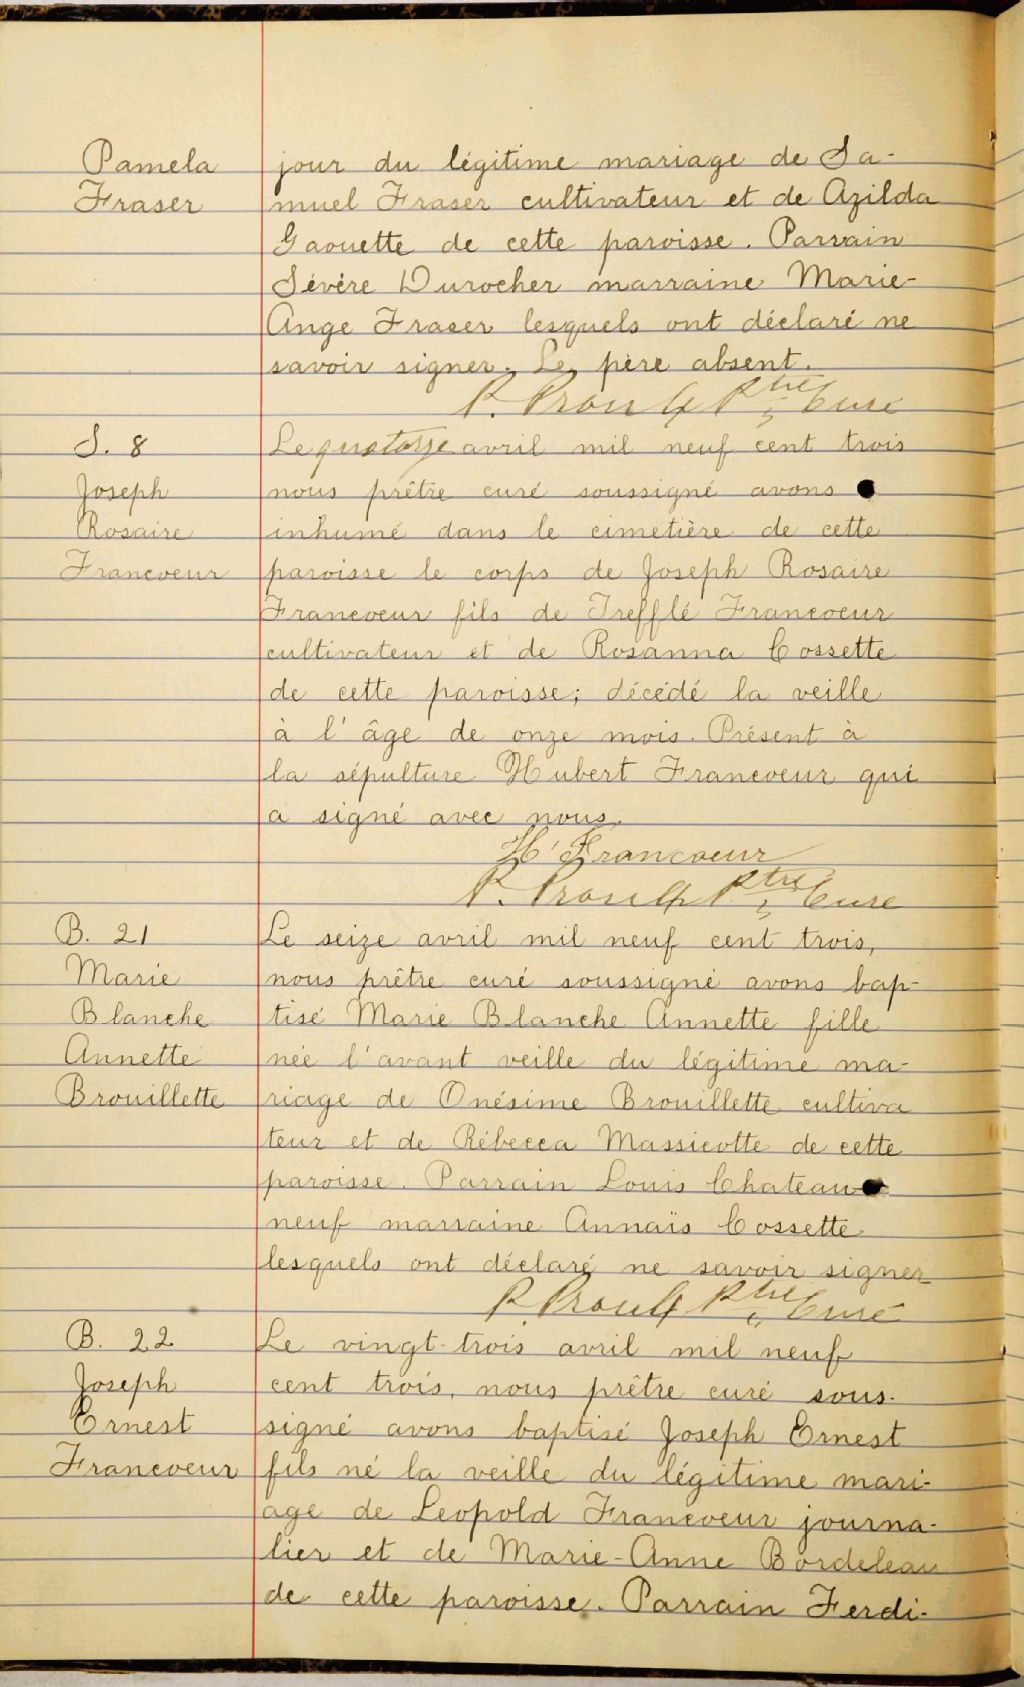 Pamela
Fraser
jour du légitime mariage de Sa-
muel Fraser cultivateur et de Azilda
Gaouette de cette paroisse. Parrain
Sévère Durocher marraine Marie-
Ange Fraser lesquels ont déclaré ne
savoir signer. Le père absent.
P. Proulx Ptre, Curé
S. 8
Joseph
Rosaire
Francoeur
Le quatorze avril mil neuf cent trois
nous prêtre curé soussigné avons
inhumé dans le cimetière de cette
paroisse le corps de Joseph Rosaire
Francoeur fils de Trefflé Francoeur
cultivateur et de Rosanna Cossette
de cette paroisse; décédé la veille
à l'âge de onze mois. Présent à
la sépulture Hubert Francoeur qui
a signé avec nous.
H' Francoeur
P. Proulx Ptre, Curé
B. 21
Marie
Blanche
Annette
Brouillette
Le seize avril mil neuf cent trois,
nous prêtre curé soussigné avons bap-
tisé Marie Blanche Annette fille
née l'avant veille du légitime ma-
riage de Onésime Brouillette cultiva
teur et de Rébecca Massicotte de cette
paroisse. Parrain Louis Chateau
neuf marraine Annaïs Cossette
lesquels ont déclaré ne savoir signer
P. Proulx Ptre, Curé
B. 22
Joseph
Ernest
Francoeur
Le vingt-trois avril mil neuf
cent trois, nous prêtre curé sous-
signé avons baptisé Joseph Ernest
fils né la veille du légitime mari-
age de Leopold Francoeur journa-
lier et de Marie-Anne Bordeleau
de cette paroisse. Parrain Ferdi-